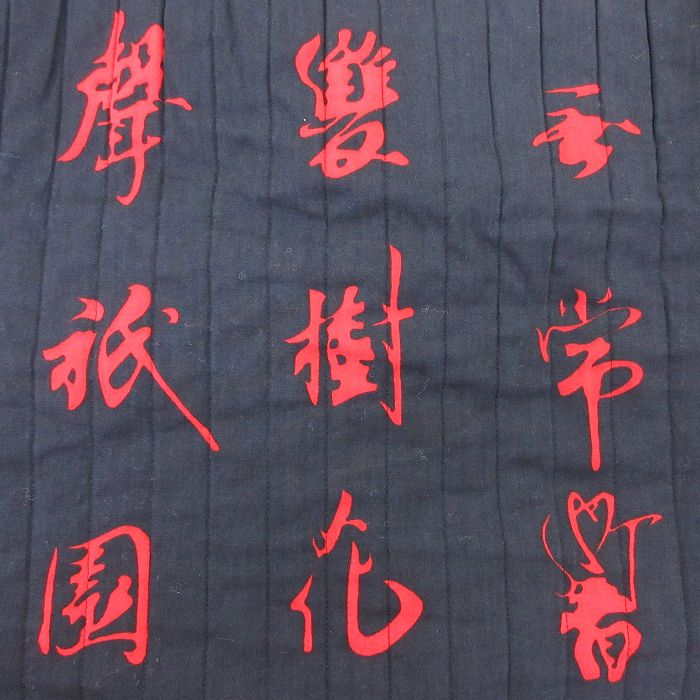 無常響
雙樹花
聲祇園